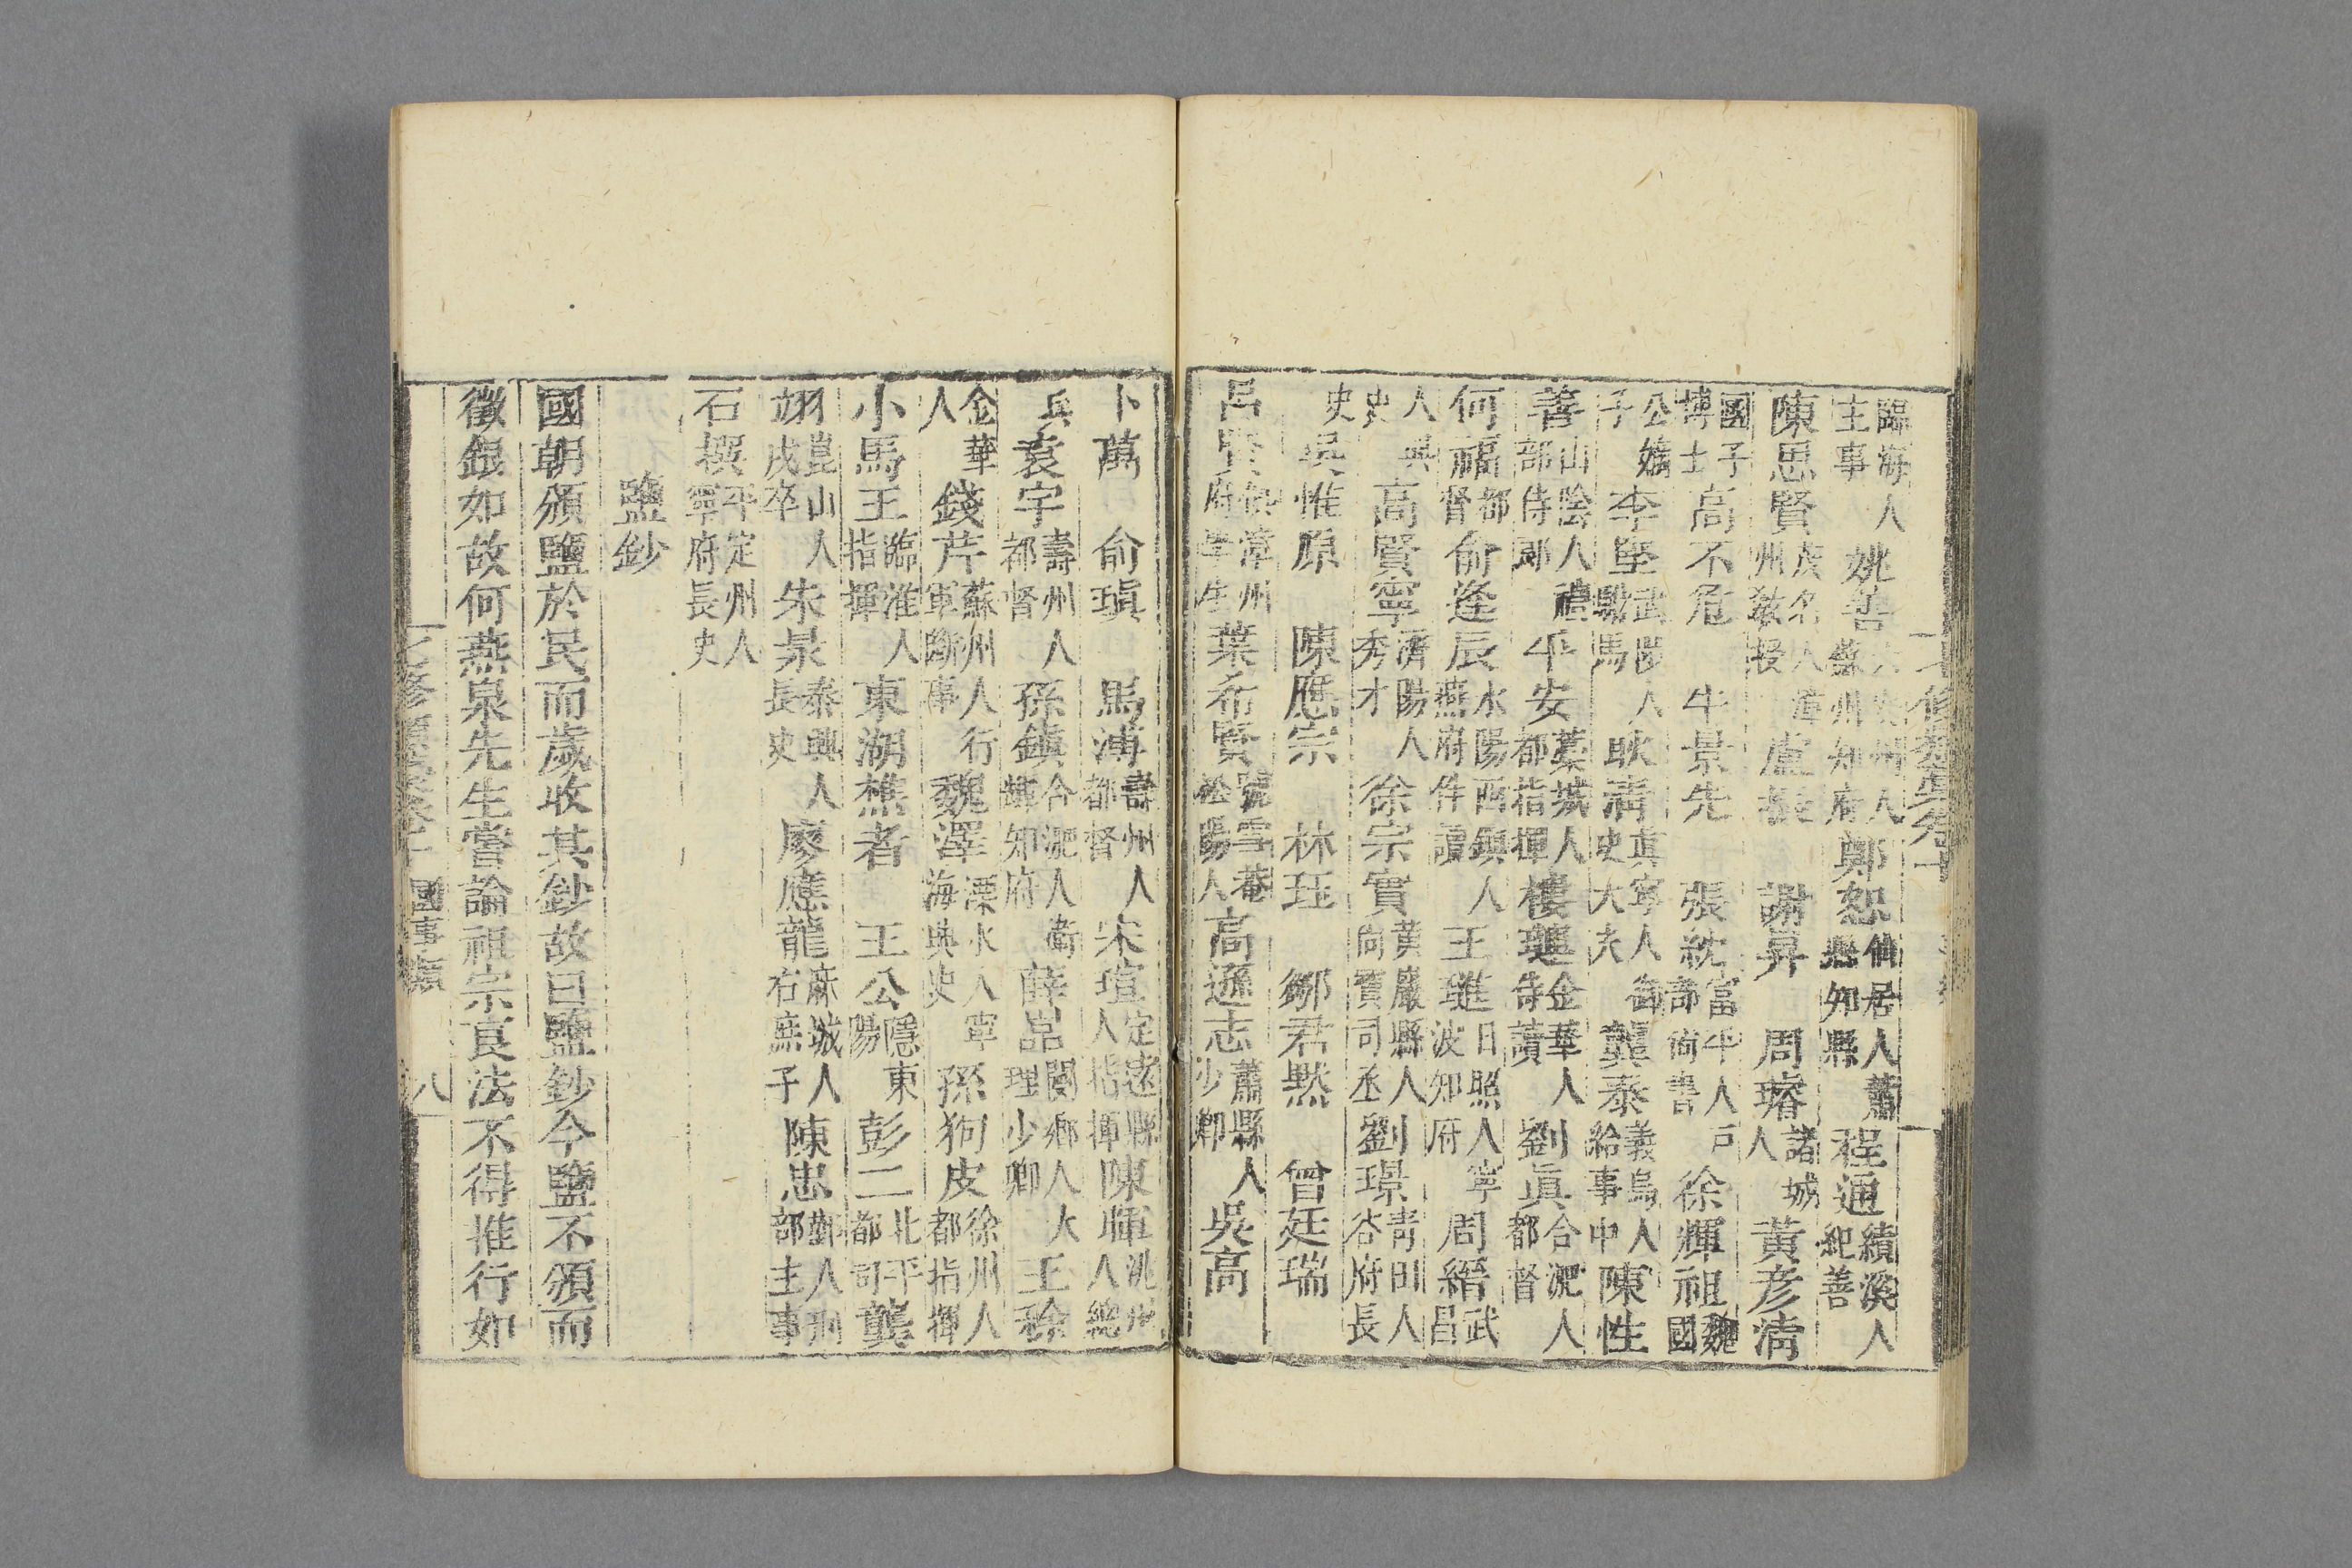 臨海人主事姚善蘇州知府鄭恕仙居人蕭縣知縣程通績溪人紀善
陳思賢茂名人漳州教授盧振 謝昇 周璿諸城人黃彥清
國子博士高不危 牛景先 張紞富平人戶部尚書徐輝祖魏國
公嫡子李堅武陟人駙馬耿清真寧人御史大夫龔泰義烏人給事中陳性
善山陰人禮部侍郎平安藁城人都指揮樓璉金華人侍讀劉真合淝人都督
何福都督俞逢辰水陽西鎮人燕府伴讀王璡日照人寧波知府周縉武昌
人吳高賢寧濟陽人秀才徐宗實黃巖縣人尚寶司丞劉璟青田人谷府長
史吳惟原 陳應宗 林珏 鄒君默 曾廷瑞
呂賢漳州府學生葉希賢號雪菴松陽人高遜志蕭縣人少卿吳高
卜萬 俞瑱 馬溥壽州人都督宋瑄定遠縣人指揮陳暉人總
兵袁宇壽州人都督孫鎮合淝人衛輝知府薛嵓閿鄉人大理少卿王稌
金華人錢芹蘇州人行軍斷事魏澤溧水人寧海典史孫狗皮徐州人都指揮
小馬王臨淮人指揮東湖樵者 王公隱東陽彭二北平都司龔
翊崑山人戍卒朱㫤泰興人長史廖應龍麻城人右庶子陳忠鄞人刑部主事
石撰平定州人寧府長史
鹽鈔
國朝頒鹽於民而歲收其鈔故曰鹽鈔今鹽不頒而
徵銀如故何燕泉先生嘗論祖宗良法不得推行如
七修類藁卷十 國事類 八